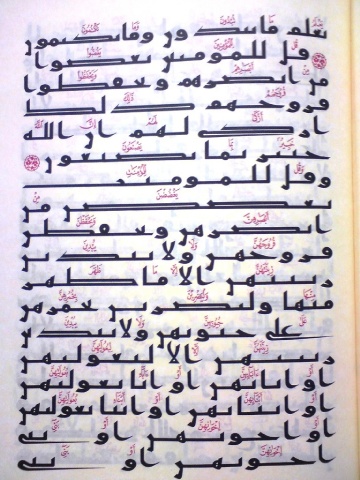 يعلم ما تبدون وما تكتمون
قل للمومنين يغضوا
من ابصرهم ويحفظوا
فروجهم ذلك
ازكى لهم ان الله
خبير بما يصنعون
وقل للمومنت
يغضضن من
ابصرهن ويحفظن
فروجهن ولا يبدين
زينتهن الا ما ظهر
منها وليضربن بخمرهن
على جيوبهن ولا يبدين
زينتهن الا لبعولتهن
او ابائهن او ابا بعولتهن
او ابنائهن او ابنا بعولتهن
او اخونهن او بني
اخونهن او بني